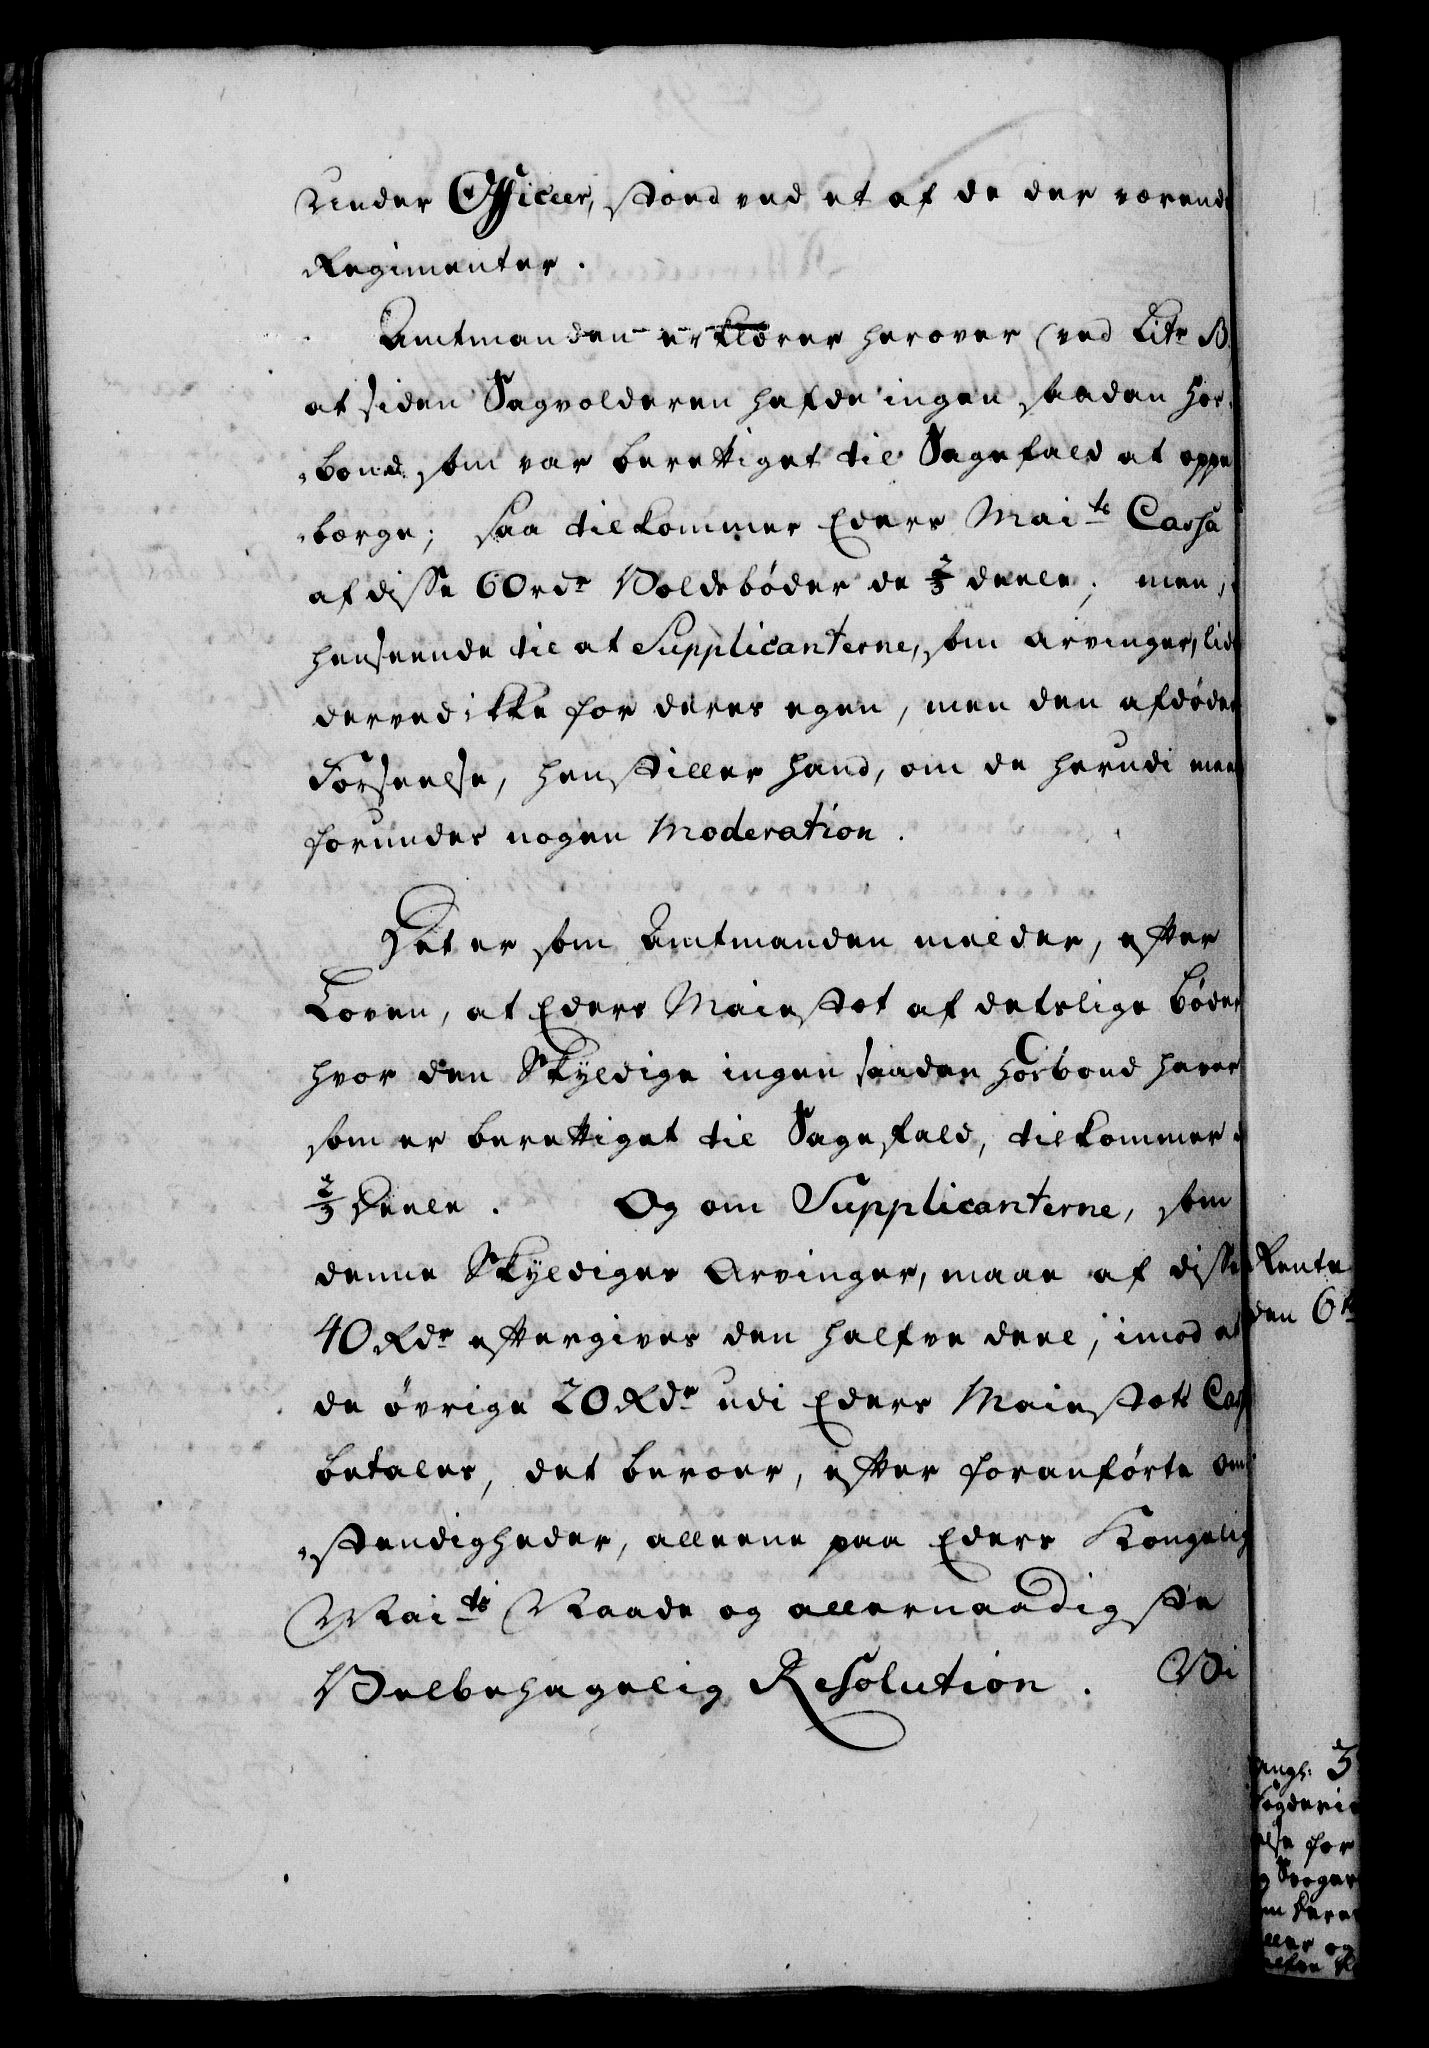 Under Officeer, stoed ved et af de der værende
Regimenter.
Amtmanden erklærer herover /: ved Litr B.
at siden Sagvolderen hafde ingen saadan Hos-
bond, som var berettiget til Sagefald at oppe
børge; saa tilkommer Eders Maits Cassa
af disse 60 rdr Voldsbøder de 2/3 deele; men, i
henseende til at Supplicanterne, som arvinger, lide
derved ikke for deres egen, men den afdødes
Forseelse, henstiller hand, om de herudi maae
forundes nogen Moderation.
Det er som Amtmanden melder, efter
Loven, at Eders Maiestet af detslige bøder
hvor den Skyldige ingen saaden Hosbond haver
som er berettiget til Sagefald, tilkommer
2/3 Deele. Og om Supplicanterne, som
denne Skyldiges Arvinger, maae af disse
40 Rdr eftergives den halfve deel, imod at
de øvrige 20 Rdr udi Eders Maiestets Cass
betales, det beroer, efter foranførte om-
stendigheder, alleene paa Eders Kongelig
Maits Naade og allernaadigste
Velbehagelig Resolution. Vi
Rente
den 6te